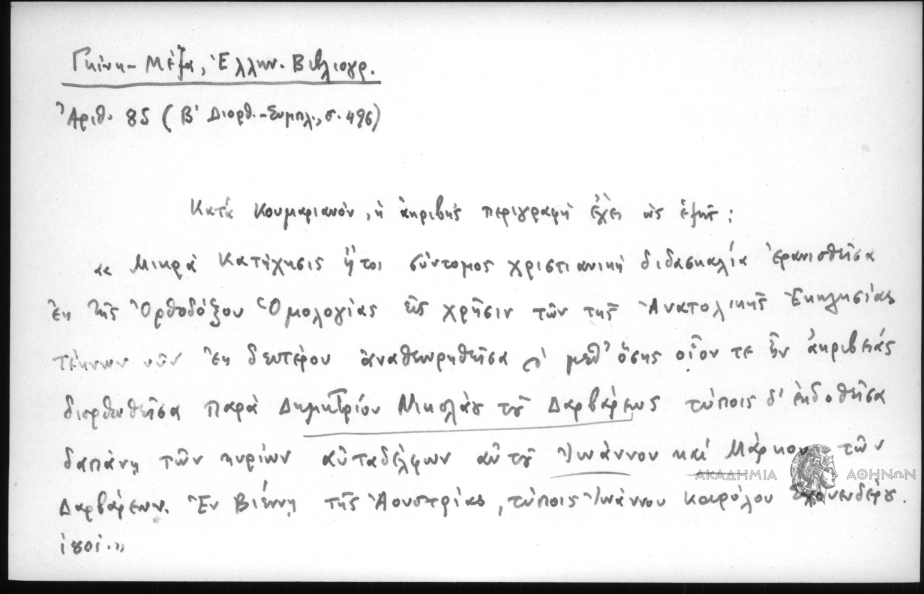 Γκίνη - Μέξα, Ἑλλην. Βιβλιογρ.
Ἀριθ. 85 (Β' Διορθ.-Συμπλ., σ. 496)
Κατὰ Κουμαριανόν, ἡ ἀκριβὴς περιγραφὴ ἔχει ὡς ἑξῆς:
«Μικρὰ Κατήχησις ἤτοι σύντομος χριστιανικὴ διδασκαλία ἐρανισθεῖσα
ἐκ τῆς Ὀρθοδόξου Ὁμολογίας εἰς χρῆσιν τῶν τῆς Ἀνατολικῆς Ἐκκλησίας
τέκνων νῦν ἐκ δευτέρου ἀναθεωρηθεῖσα καὶ μεθ' ὅσης οἷόν τε ἦν ἀκριβείας
διορθωθεῖσα παρὰ Δημητρίου Νικολάου τοῦ Δαρβάρεως τύποις δ' ἐκδοθεῖσα
δαπάνῃ τῶν κυρίων αὐταδέλφων αὐτοῦ Ἰωάννου καὶ Μάρκου τῶν
Δαρβάρεων. Ἐν Βιέννῃ τῆς Ἀουστρίας, τύποις Ἰωάννου Καρόλου
ΑΚΑΔΗΜΙΑ ΑΘΗΝΩΝ